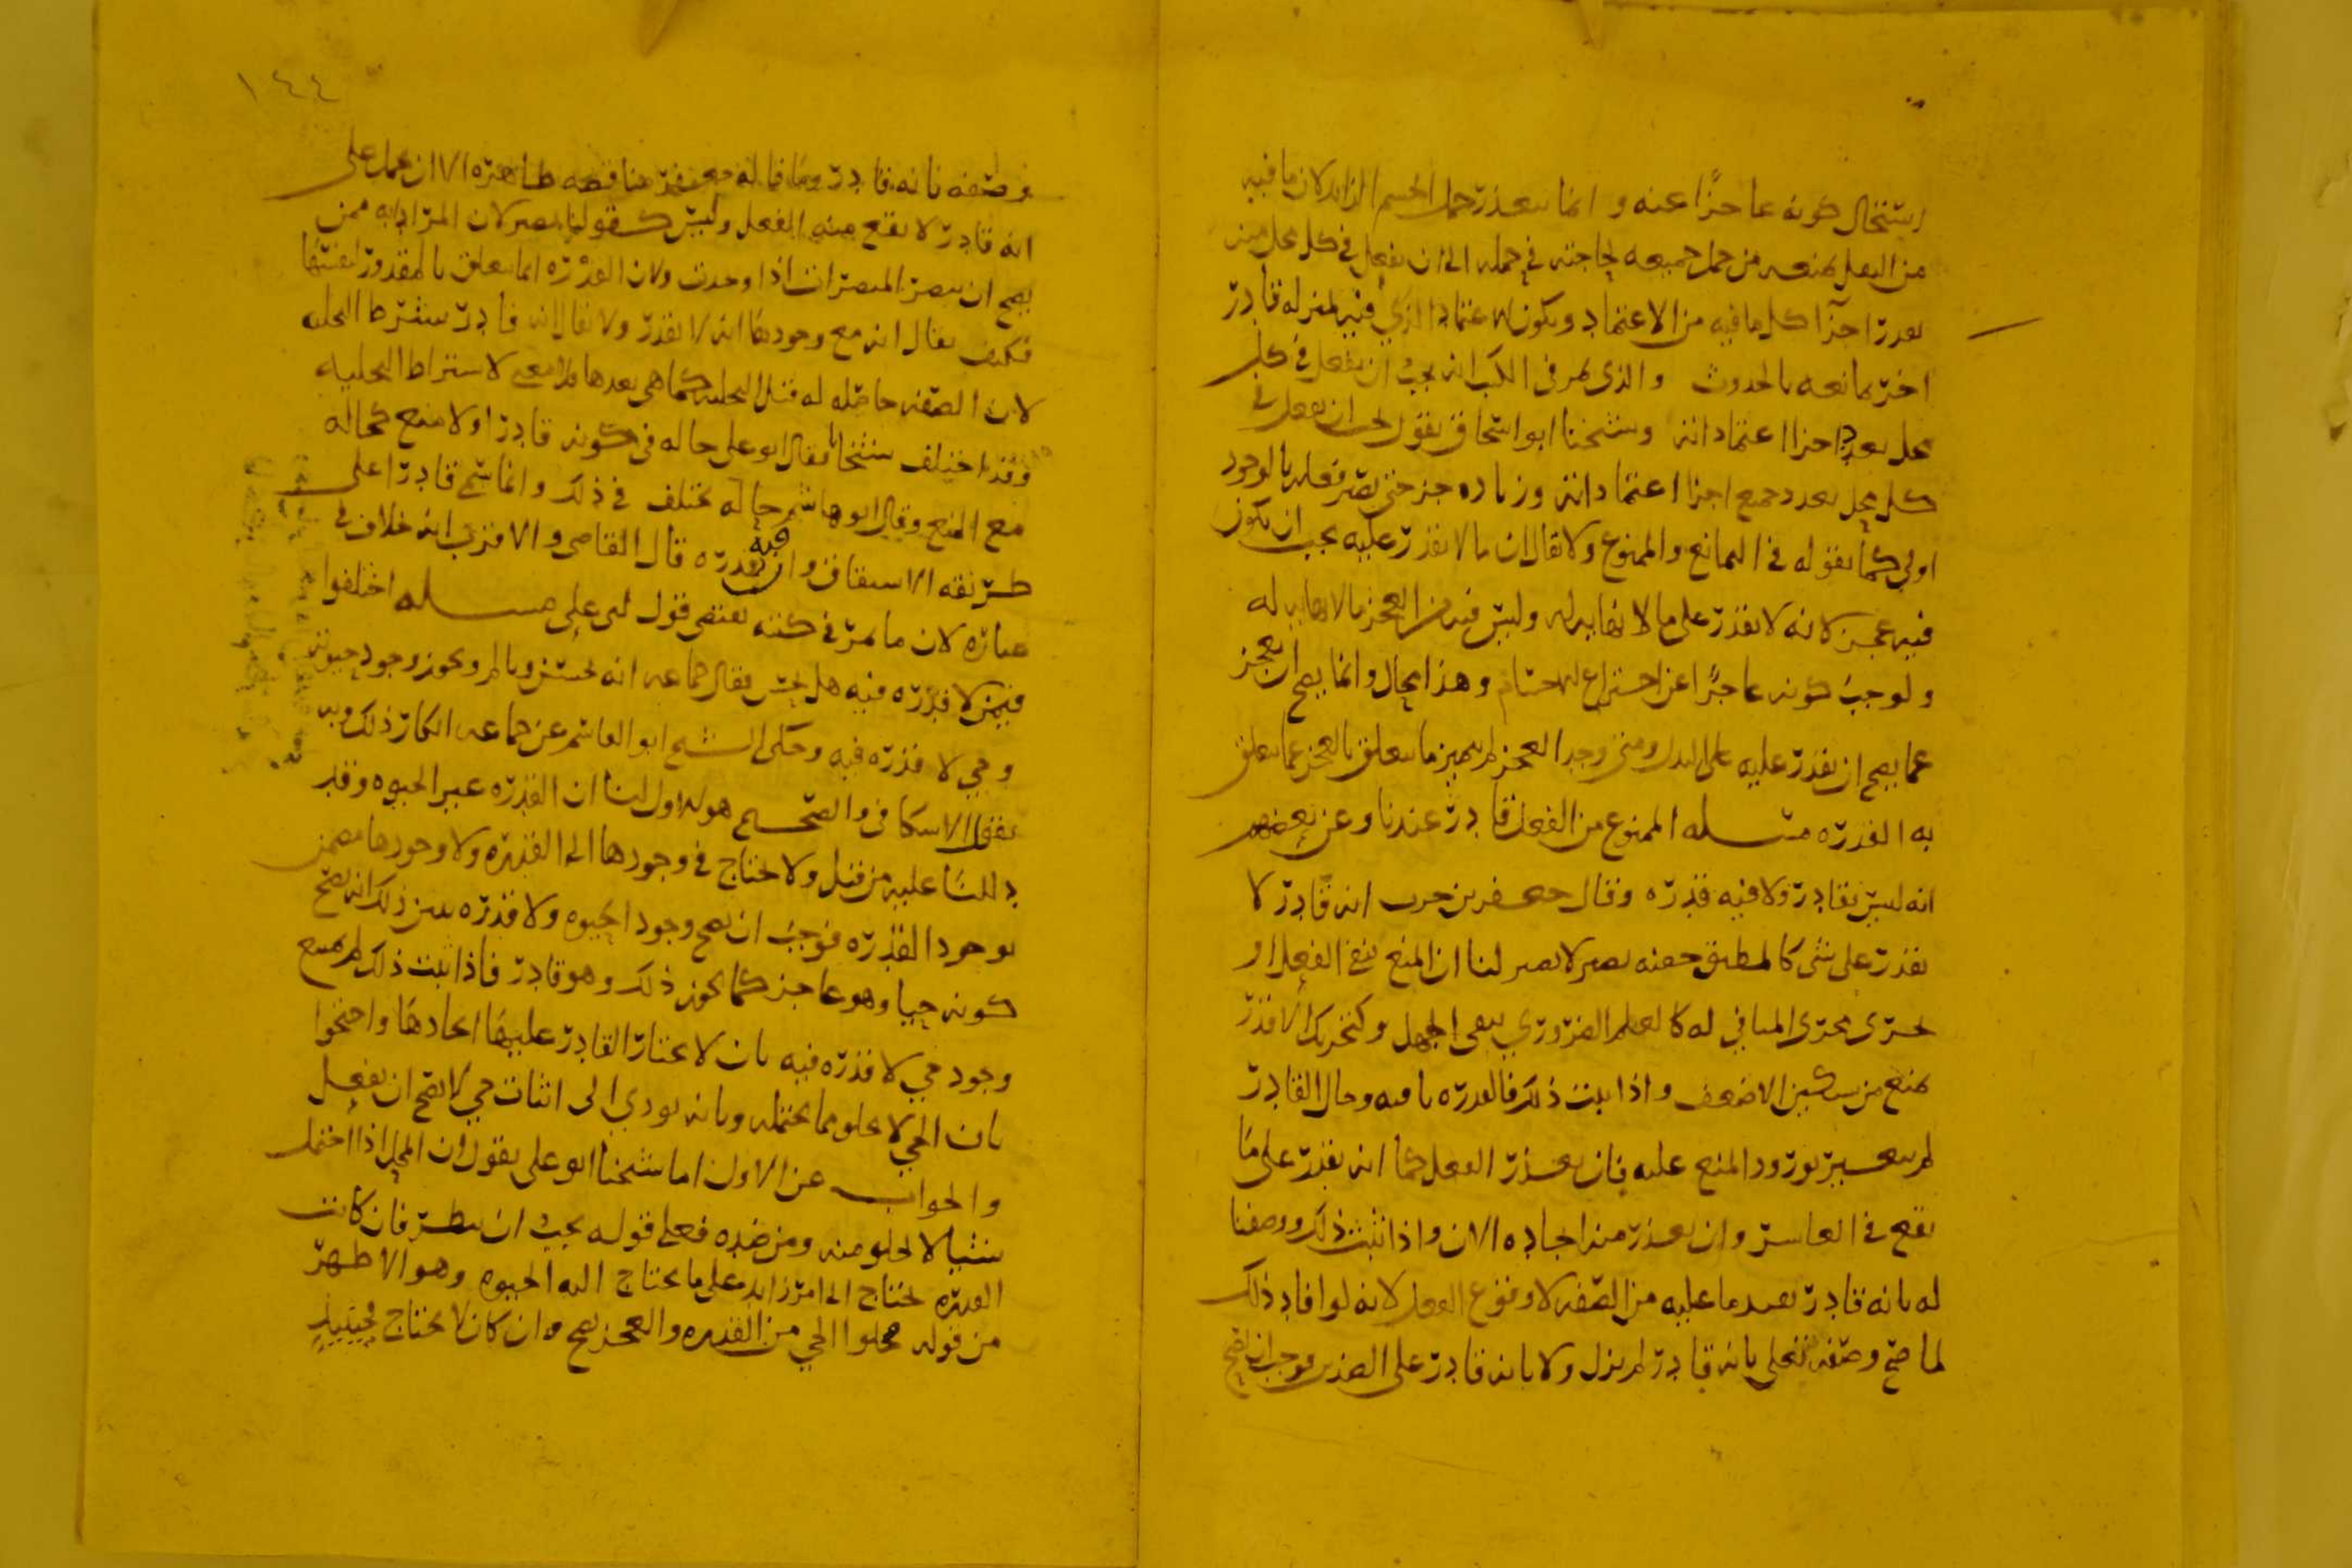 استحال كونه عاجزا عنه وانما يتعذر حمل الجسم الزايد لان ما فيه
من الثقل يمنعه من حمل جميعه لحاجته في حمله الى ان يفعل في كل محل منه
بعدد اجزآ كل ما فيه من الاعتماد ويكون الاعتماد الذي فيه بمنزله قادر
اخر يمانعه بالحدوث والذي يمر في الكتب انه يجب ان يفعل في كل
محل بعدد اجزا اعتماداته وشيخنا ابو اسحاق يقول يجب ان يفعل في
كل محل بعدد جميع اجزا اعتماداته وزياده جز حتى يصير فعله بالوجود
اولى كما نقوله في التمانع والممنوع ولا يقال ان ما لا يقدر عليه يجب ان يكون
فيه عجز لانه لا يقدر على ما لا نهايه له وليس فيه من العجز ما لا نهايه له
ولوجب كونه عاجزا عن اختراع الاجسام وهذا محال وانما يصح ان يعجز
عما يصح ان يقدر عليه على البدل ومتى وجد العجز لم يتميز ما يتعلق بالعجز عما يتعلق
به القدره مسله الممنوع من الفعل قادر عندنا وعن بعضهم
انه ليس بقادر ولا فيه قدره وقال جعفر بن حرب انه قادر لا
يقدر على شي كالمطبق جفنه بصير لا يبصر لنا ان المنع ينفي الفعل او
يجري مجرى المنافي له كالعلم الضروري ينفي الجهل وكتحريك الاقدر
يمنع من تسكين الاضعف واذا ثبت ذلك فالقدره باقيه وحال القادر
لم يتغير بورود المنع عليه فان تعذر الفعل كما انه يقدر على ما
يقع في العاشر وان تعذر منه ايجاده الان واذا ثبت ذلك ووصفنا
له بانه قادر يفيد ما عليه من الصفه لا وقوع الفعل لانه لو افاد ذلك
لما صح وصفه تعالى بانه قادر لم يزل ولا بانه قادر على الضدين فوجب ان يصح
١٤٤
وصفه بانه قادر وما قاله جعفر مناقضه ظاهره الا ان يحمل على
انه قادر لا يقع منه الفعل وليس كقولنا بصير لان المراد به ممن
يصح ان يبصر المبصرات اذا وجدت ولان القدره انما تتعلق بالمقدور لنفسها
فكيف يقال انه مع وجودها انه لا يقدر ولا يقال انه قادر بشرط التخليه
لان الصفه حاصله له قبل التخليه كما هي بعدها فلا معنى لاشتراط التخليه
وقد اختلف شيخانا فقال ابو علي حاله في كونه قادرا ولا منع كحاله
مع المنع وقال ابو هاشم حاله تختلف في ذلك وانما سمي قادرا على
طريقه الاشتقاق وان فيه قدره قال القاضي والاقرب انه خلاف في
عباره لان ما يمر في كتبه يقتضي قول ابي علي مسله اختلفوا
فيمن لا قدره فيه هل يحس فقال جماعه انه يحس ويالم ويجوز وجود حيوه
وحي لا قدره فيه وحكى الشيخ ابو القاسم عن جماعه انكار ذلك وبه
يقول الاسكافي والصحيح هو الاول لنا ان القدره غير الحيوه وقد
دللنا عليه من قبل ولا تحتاج في وجودها الى القدره ولا وجودها مضمن
بوجود القدره فوجب ان يصح وجود الحيوه ولا قدره يبين ذلك انه يصح
كونه حيا وهو عاجز كما يجوز ذلك وهو قادر فاذا ثبت ذلك لم يمتنع
وجود حي لا قدره فيه بان لا يختار القادر عليها ايجادها واحتجوا
بان الحي لا يخلو مما يحتمله وبانه يودي الى اثبات حي لا يصح ان يفعل
والجواب عن الاول اما شيخنا ابو علي يقول ان المحل اذا احتمل
شيا لا يخلو منه ومن ضده فعلى قوله يجب ان ينظر فان كانت
القدره تحتاج الى امر زايد على ما يحتاج اليه الحيوه وهو الاظهر
من قوله فخلوا الحي من القدره والعجز يصح وان كان لا يحتاج فحينيذ